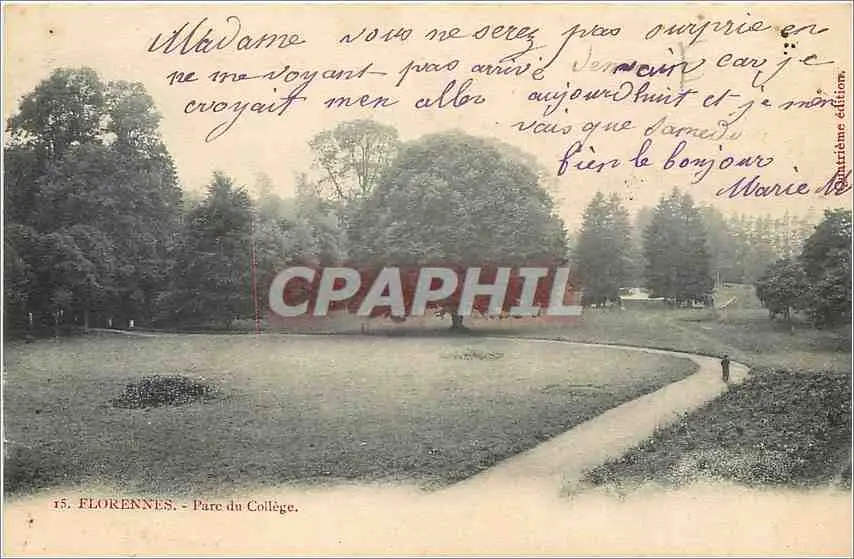 Madame vous ne serez pas surprie en
ne me voyant pas arrivé demain car je
croyait men aller aujourdhuit et je m'en
vais que Samedu
bien le bonjour
Marie
quatrième édition.
CPARHIL
15. FLORENNES. - Parc du Collège.